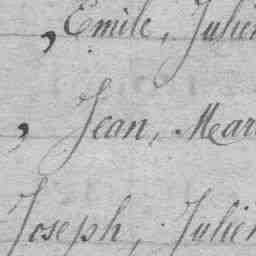 , Emile, Julien
, Jean, Mar
Joseph, Julien